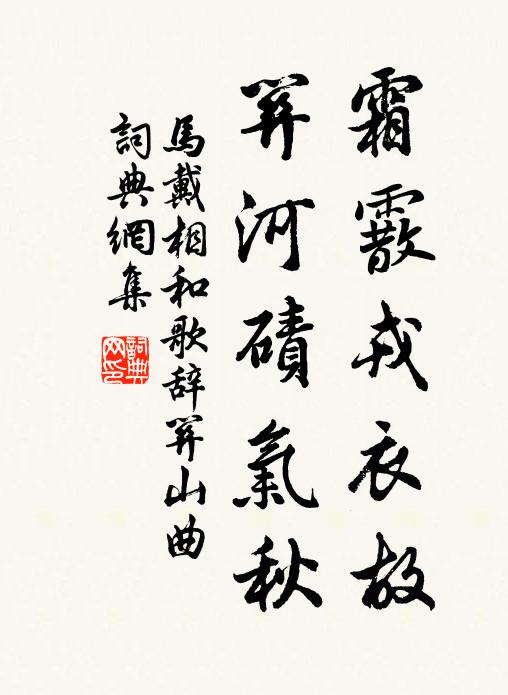 霜霰戎衣故
關河磧氣秋
馬戴相和歌辞關山曲
詞典網集
詞典
网印